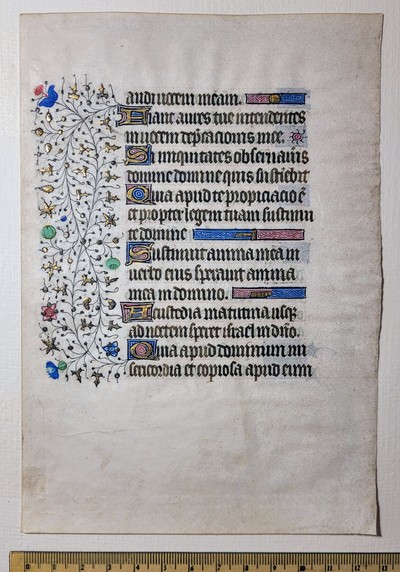 audi vocem meam.
Fiant aures tue intendentes
in vocem dep̄cacionis mee.
Si iniquitates observaveris
domine domine quis sustiebit
Quia apud te propiciacio ē
et propter legem tuam sustinui
te domine
Sustinuit anima mea in
verbo eius speravit anima
mea in domino.
A custodia matutina usq;
ad noctem speret israel in dn̄o.
Quia apud dominum mi
sericordia et copiosa apud eum
0 1 2 3 4 5 6 7 8 9 10 11 12 13